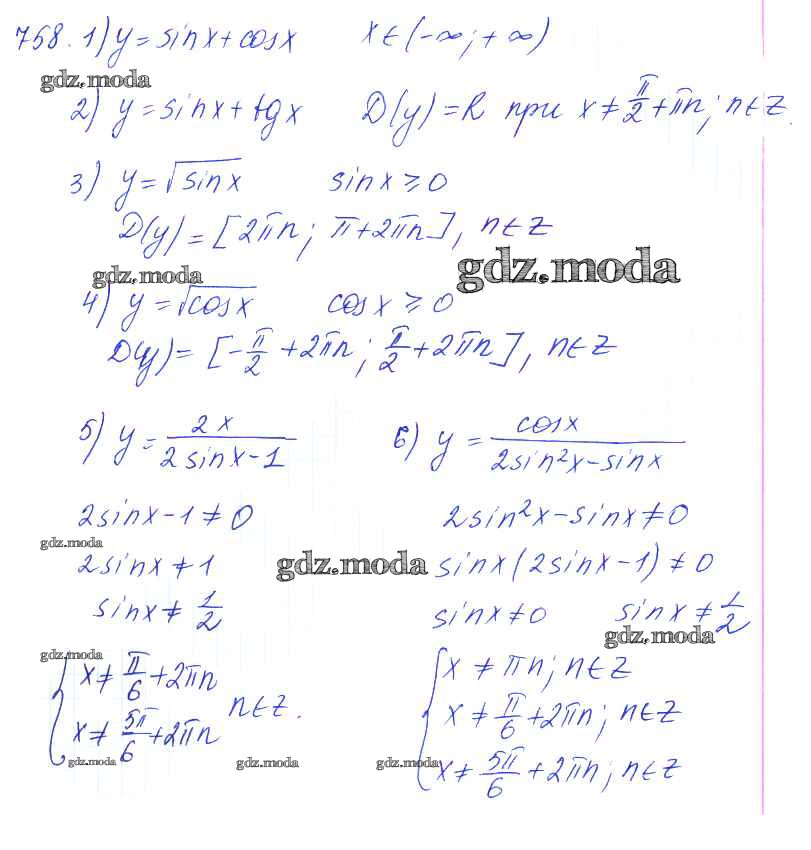 758. 1) y = sinx + cosx x ∈ (-∞; +∞)
gdz.moda
2) y = sinx + tgx D(y) = R при x ≠ π/2 + πn; n ∈ Z.
3) y = √sinx sinx ≥ 0
D(y) = [2πn; π + 2πn], n ∈ Z
gdz.moda gdz.moda
4) y = √cosx cosx ≥ 0
D(y) = [-π/2 + 2πn; π/2 + 2πn], n ∈ Z
5) y = 2x/(2sinx - 1) 6) y = cosx/(2sin²x - sinx)
2sinx - 1 ≠ 0 2sin²x - sinx ≠ 0
gdz.moda
2sinx ≠ 1 gdz.moda sinx(2sinx - 1) ≠ 0
sinx ≠ 1/2 sinx ≠ 0 sinx ≠ 1/2
gdz.moda
gdz.moda
{ x ≠ π/6 + 2πn { x ≠ πn; n ∈ Z
n ∈ Z. x ≠ π/6 + 2πn; n ∈ Z
x ≠ 5π/6 + 2πn x ≠ 5π/6 + 2πn; n ∈ Z
gdz.moda gdz.moda gdz.moda